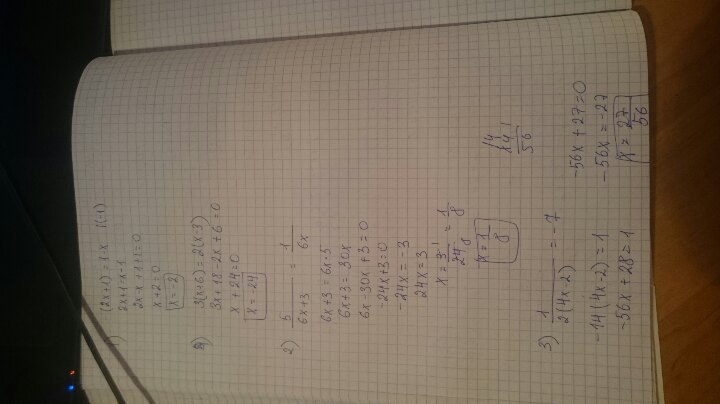 1)
2x-x+1+1=0
x+2=0
x=-2
3(x+6)=2(x-3)
3x+18-2x+6=0
x+24=0
x=-24
2) 5/(6x+3) = 1/6x
6x+3=6x·5
6x+3=30x
6x-30x+3=0
-24x+3=0
-24x=-3
24x=3
x=3/24=1/8
x=1/8
3) 1/2(4x-2) = -7
-14(4x-2)=1
-56x+28=1
-56x+27=0
-56x=-27
x=27/56
56